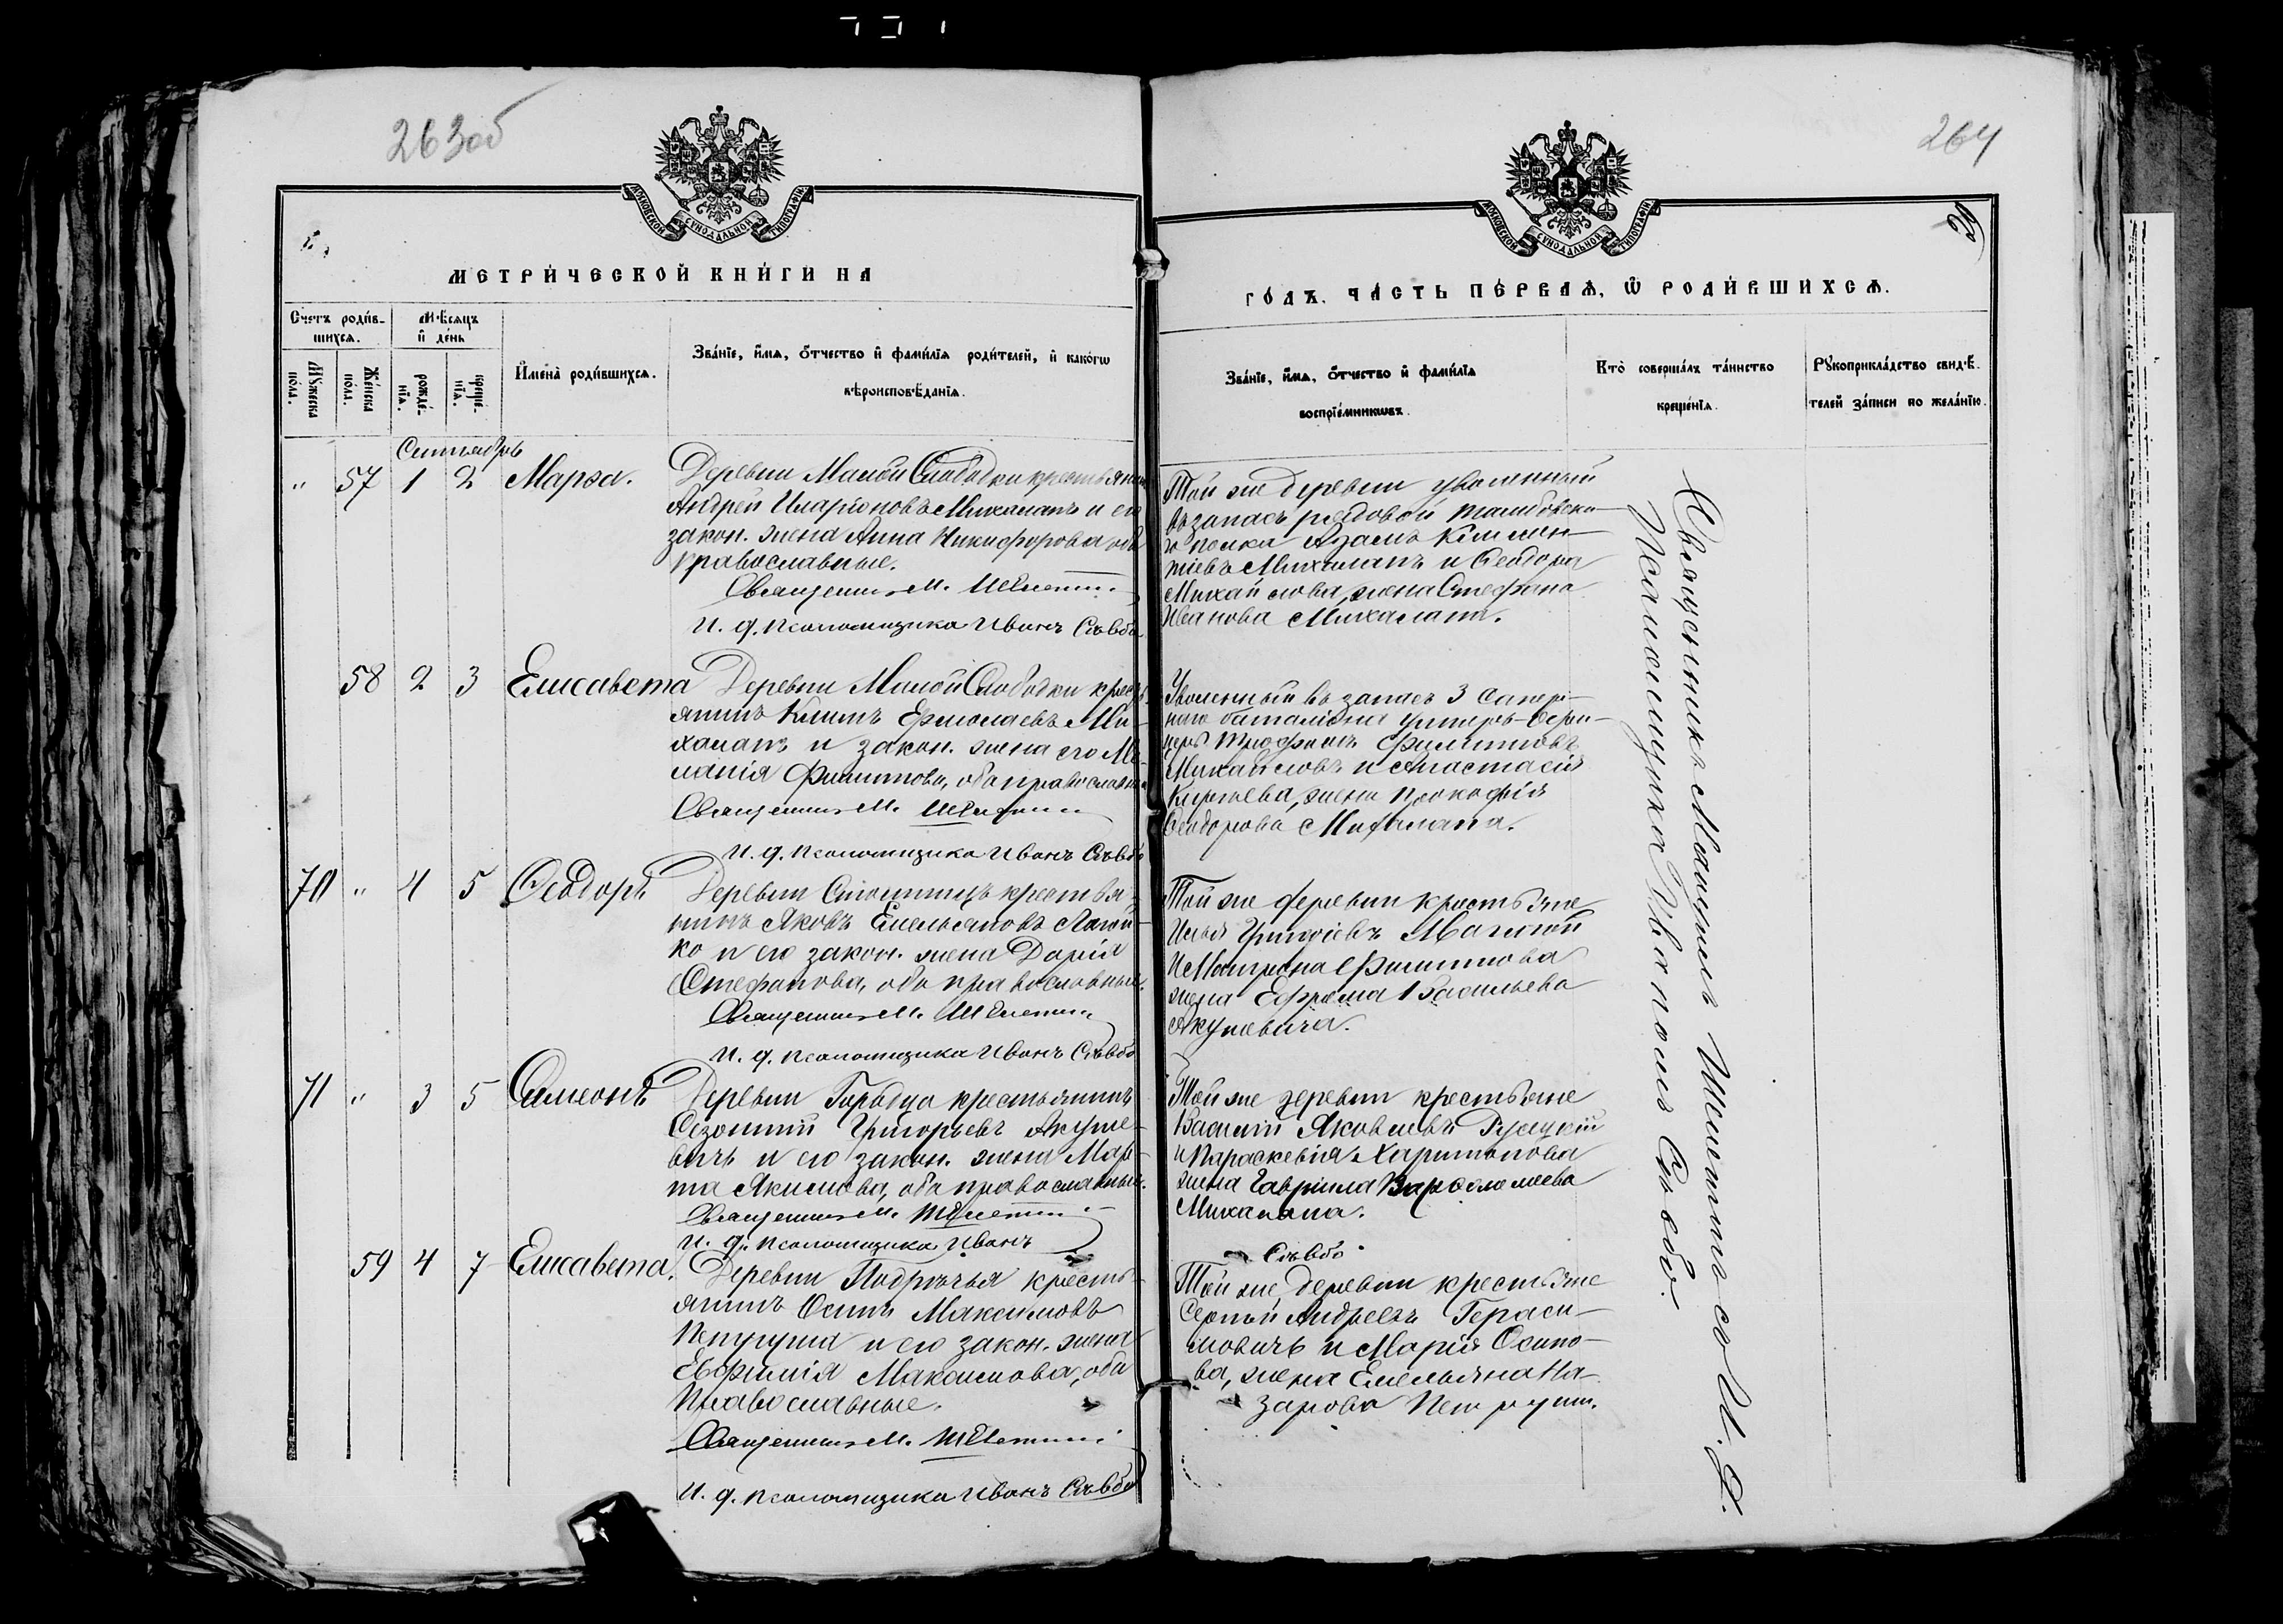 263об
264
МОСКОВСКОЙ СУНОДАЛЬНОЙ ТИПОГРАФІИ
МОСКОВСКОЙ СУНОДАЛЬНОЙ ТИПОГРАФІИ
МЕТРИ́ЧЕСКОЙ КНИ́ГИ НА
ГО́ДЪ. ЧА́СТЬ ПЕ́РВАѦ, Ѿ РОДИ́ВШИХСѦ.
Сче́тъ роди́в-
шихся.
Мꙋ́жеска по́ла.
Же́нска по́ла.
Мѣ́сяцъ и҆ де́нь
рожде́нїя.
креще́нїя.
И҆мена̀ роди́вшихся.
Зва́нїе, и҆́мя, ѻ҆́тчество и҆ фами́лїя роди́телей, и҆ како́гѡ
вѣроисповѣ́данїя.
Зва́нїе, и҆́мя, ѻ҆́тчество и҆ фами́лїя
воспрїе́мникѡвъ.
Кто̀ соверша́лъ та́инство
креще́нїя.
Рꙋкоприкла́дство свидѣ́-
телей за́писи по жела́нїю.
Сентябрь
" 57 1 2 Марѳа.
Деревни Малой Слободки крестьянинъ
Андрей Иларіоновъ Михалапъ и его
закон. жена Анна Никифорова оба
православные.
Священникъ М.
И. д. псаломщика Иванъ
Той же деревни уволенный
въ запасъ рядовой тамбовска-
го полка Адамъ Климен-
тіевъ Михалапъ и Ѳеодора
Михайлова, жена Стефана
Иванова Михалапа.
58 2 3 Елисавета
Деревни Малой Слободки кресть-
янинъ Климъ Ермолаевъ Ми-
халапъ и закон. жена его Ме-
ланія Филиппова, оба православные
Священникъ М.
И. д. псаломщика Иванъ
Уволенный въ запасъ 3 Сапер-
наго баталіона унтеръ-офи-
церъ Трофимъ Филипповъ
Михайловъ и Анастасія
жена Прокофія
Ѳеодорова Михалапа.
70 " 4 5 Ѳеодоръ
Деревни крестья-
нинъ Яковъ Емельяновъ
ко и его закон. жена Дарія
Стефанова, оба православные.
Священникъ М.
И. д. псаломщика Иванъ
Той же деревни крестьяне
Илья Григорьевъ
и Матрона Филиппова
жена Ефрема Васильева
Якуцевича.
71 " 3 5 Симеонъ
Деревни крестьянинъ
Созонтій Григорьевъ
вичъ и его закон. жена Мар-
та Якимова, оба православные.
Священникъ М.
И. д. псаломщика Иванъ
Той же деревни крестьяне
Василій Яковлевъ
и Параскевія Харитонова
жена Гавріила Варѳоломеева
Михалапа.
59 4 7 Елисавета.
Деревни Подрѣчья кресть-
янинъ Осипъ Максимовъ
Петруша и его закон. жена
Евфимія Максимова, оба
Православные.
Священникъ М.
И. д. псаломщика Иванъ
Той же деревни крестьяне
Сергѣй Андреевъ Гераси-
мовичъ и Марія Осипо-
ва, жена Емельяна На-
зарова
Священникъ съ И. д.
Псаломщика Иваномъ